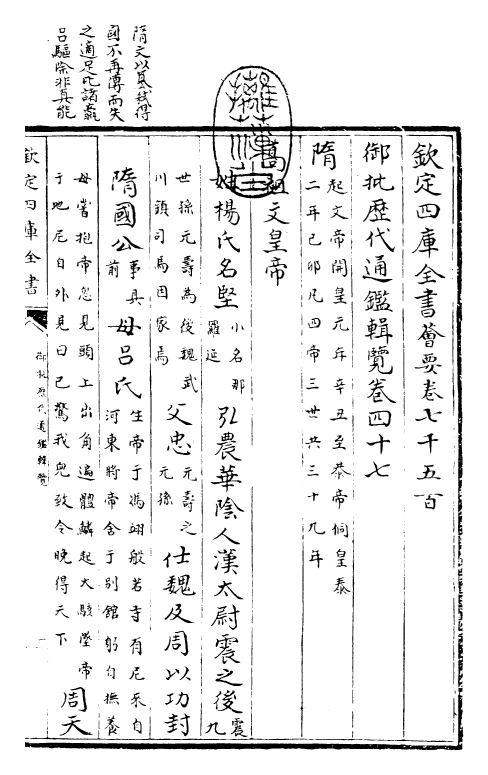 欽定四庫全書薈要卷七千五百
御批歷代通鑑輯覽卷四十七
隋
起文帝開皇元年辛丑至恭帝侗皇泰
二年己卯凡四帝三世共三十九年
高祖文皇帝
姓楊氏名堅
小名那
羅延
弘農華陰人漢太尉震之後
震
九
世孫元壽為後魏武
川鎮司馬因家焉
父忠
元壽之
元孫
仕魏及周以功封
隋國公
事具
前
母吕氏
生帝于馮翊般若寺有尼來自
河東將帝舍于别館躬自撫養
母嘗抱帝忽見頭上出角遍體鱗起大駭墜帝
于地尼自外見曰已驚我兒致令晚得天下
周天
隋文以簒弑得
國不再傳而失
之適足比諸嬴
吕驅除非真能
欽定四庫全書
御批歷代通鑑輯覽
一